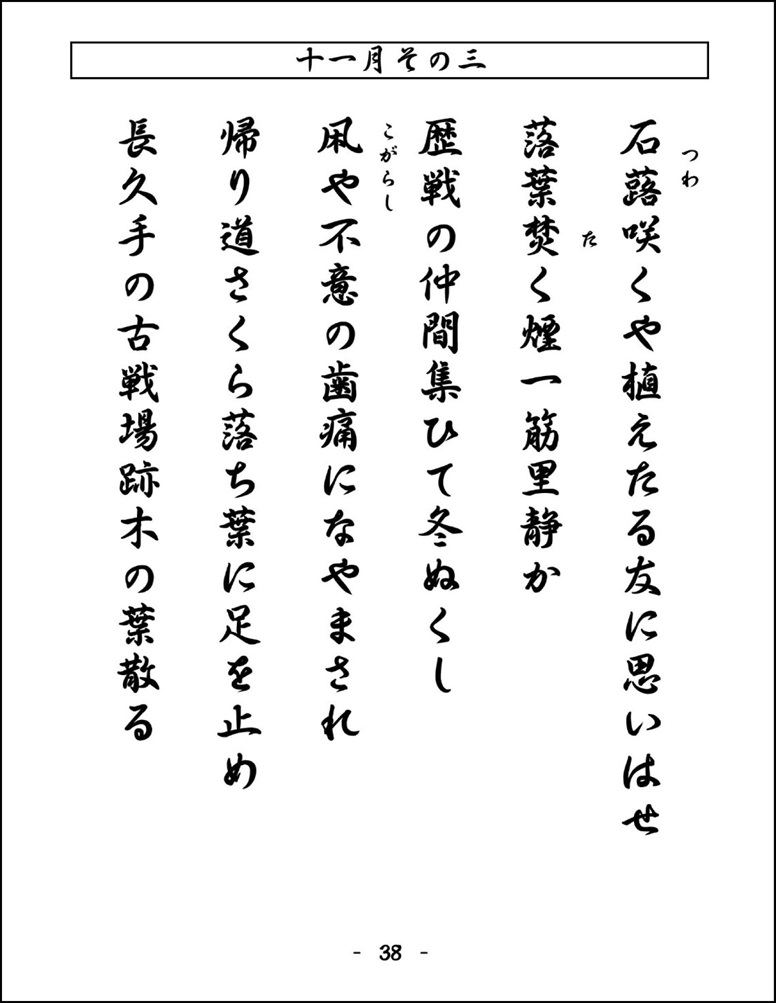 十一月その三
石蕗咲くや植えたる友に思いはせ
つわ
落葉焚く煙一筋里静か
た
歴戦の仲間集ひて冬ぬくし
凩や不意の歯痛になやまされ
こがらし
帰り道さくら落ち葉に足を止め
長久手の古戦場跡木の葉散る
- 38 -